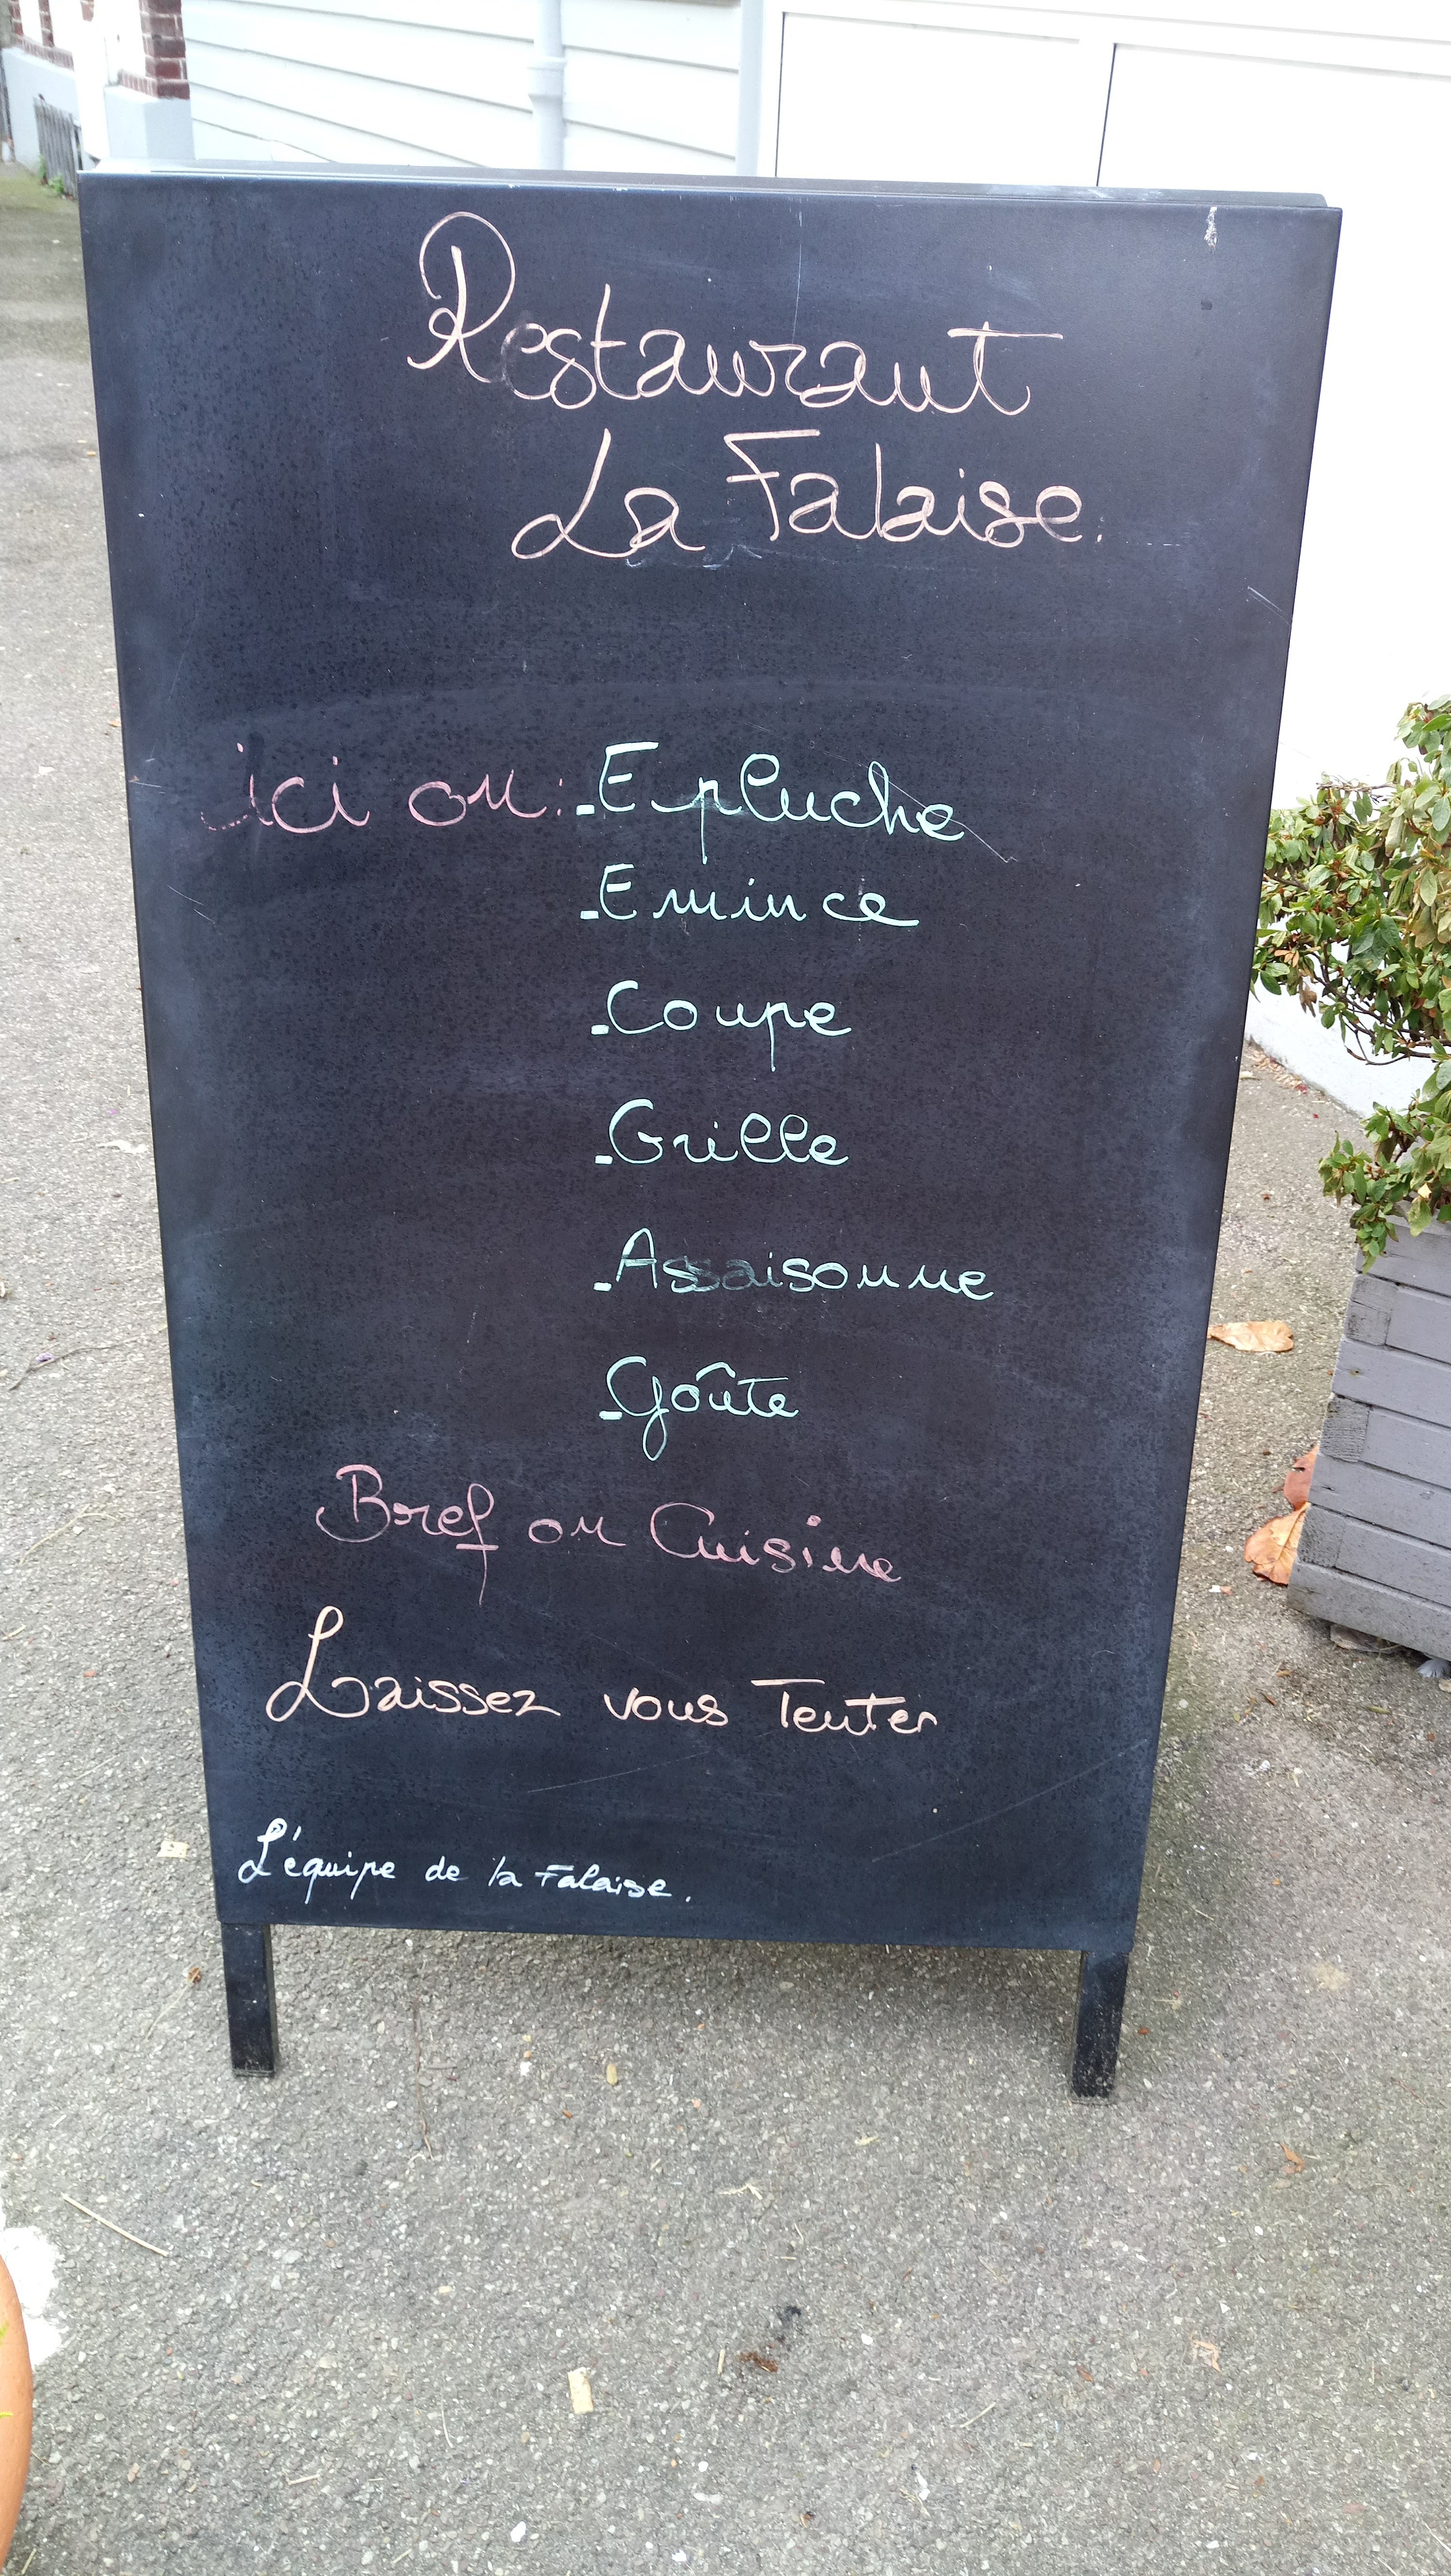 Restaurant
La Falaise.
ici on : - Epluche
- Emince
- Coupe
- Grille
- Assaisonne
- Goûte
Bref on Cuisine
Laissez vous Tenter
L'équipe de la Falaise.